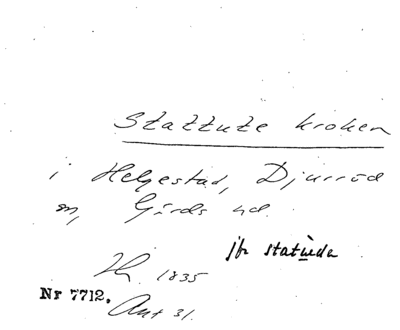 Stattute kroken
i Helgestad, Djurröd
sn, Gärds hd.
jfr statuda
1835
Nr 7712.
Ant 31.